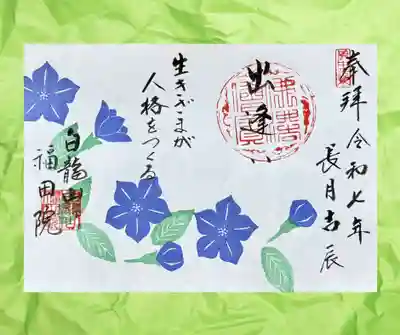 奉拝
令和七年
長月吉辰
出逢い
生きざまが
人格をつくる
白龍山
福田院